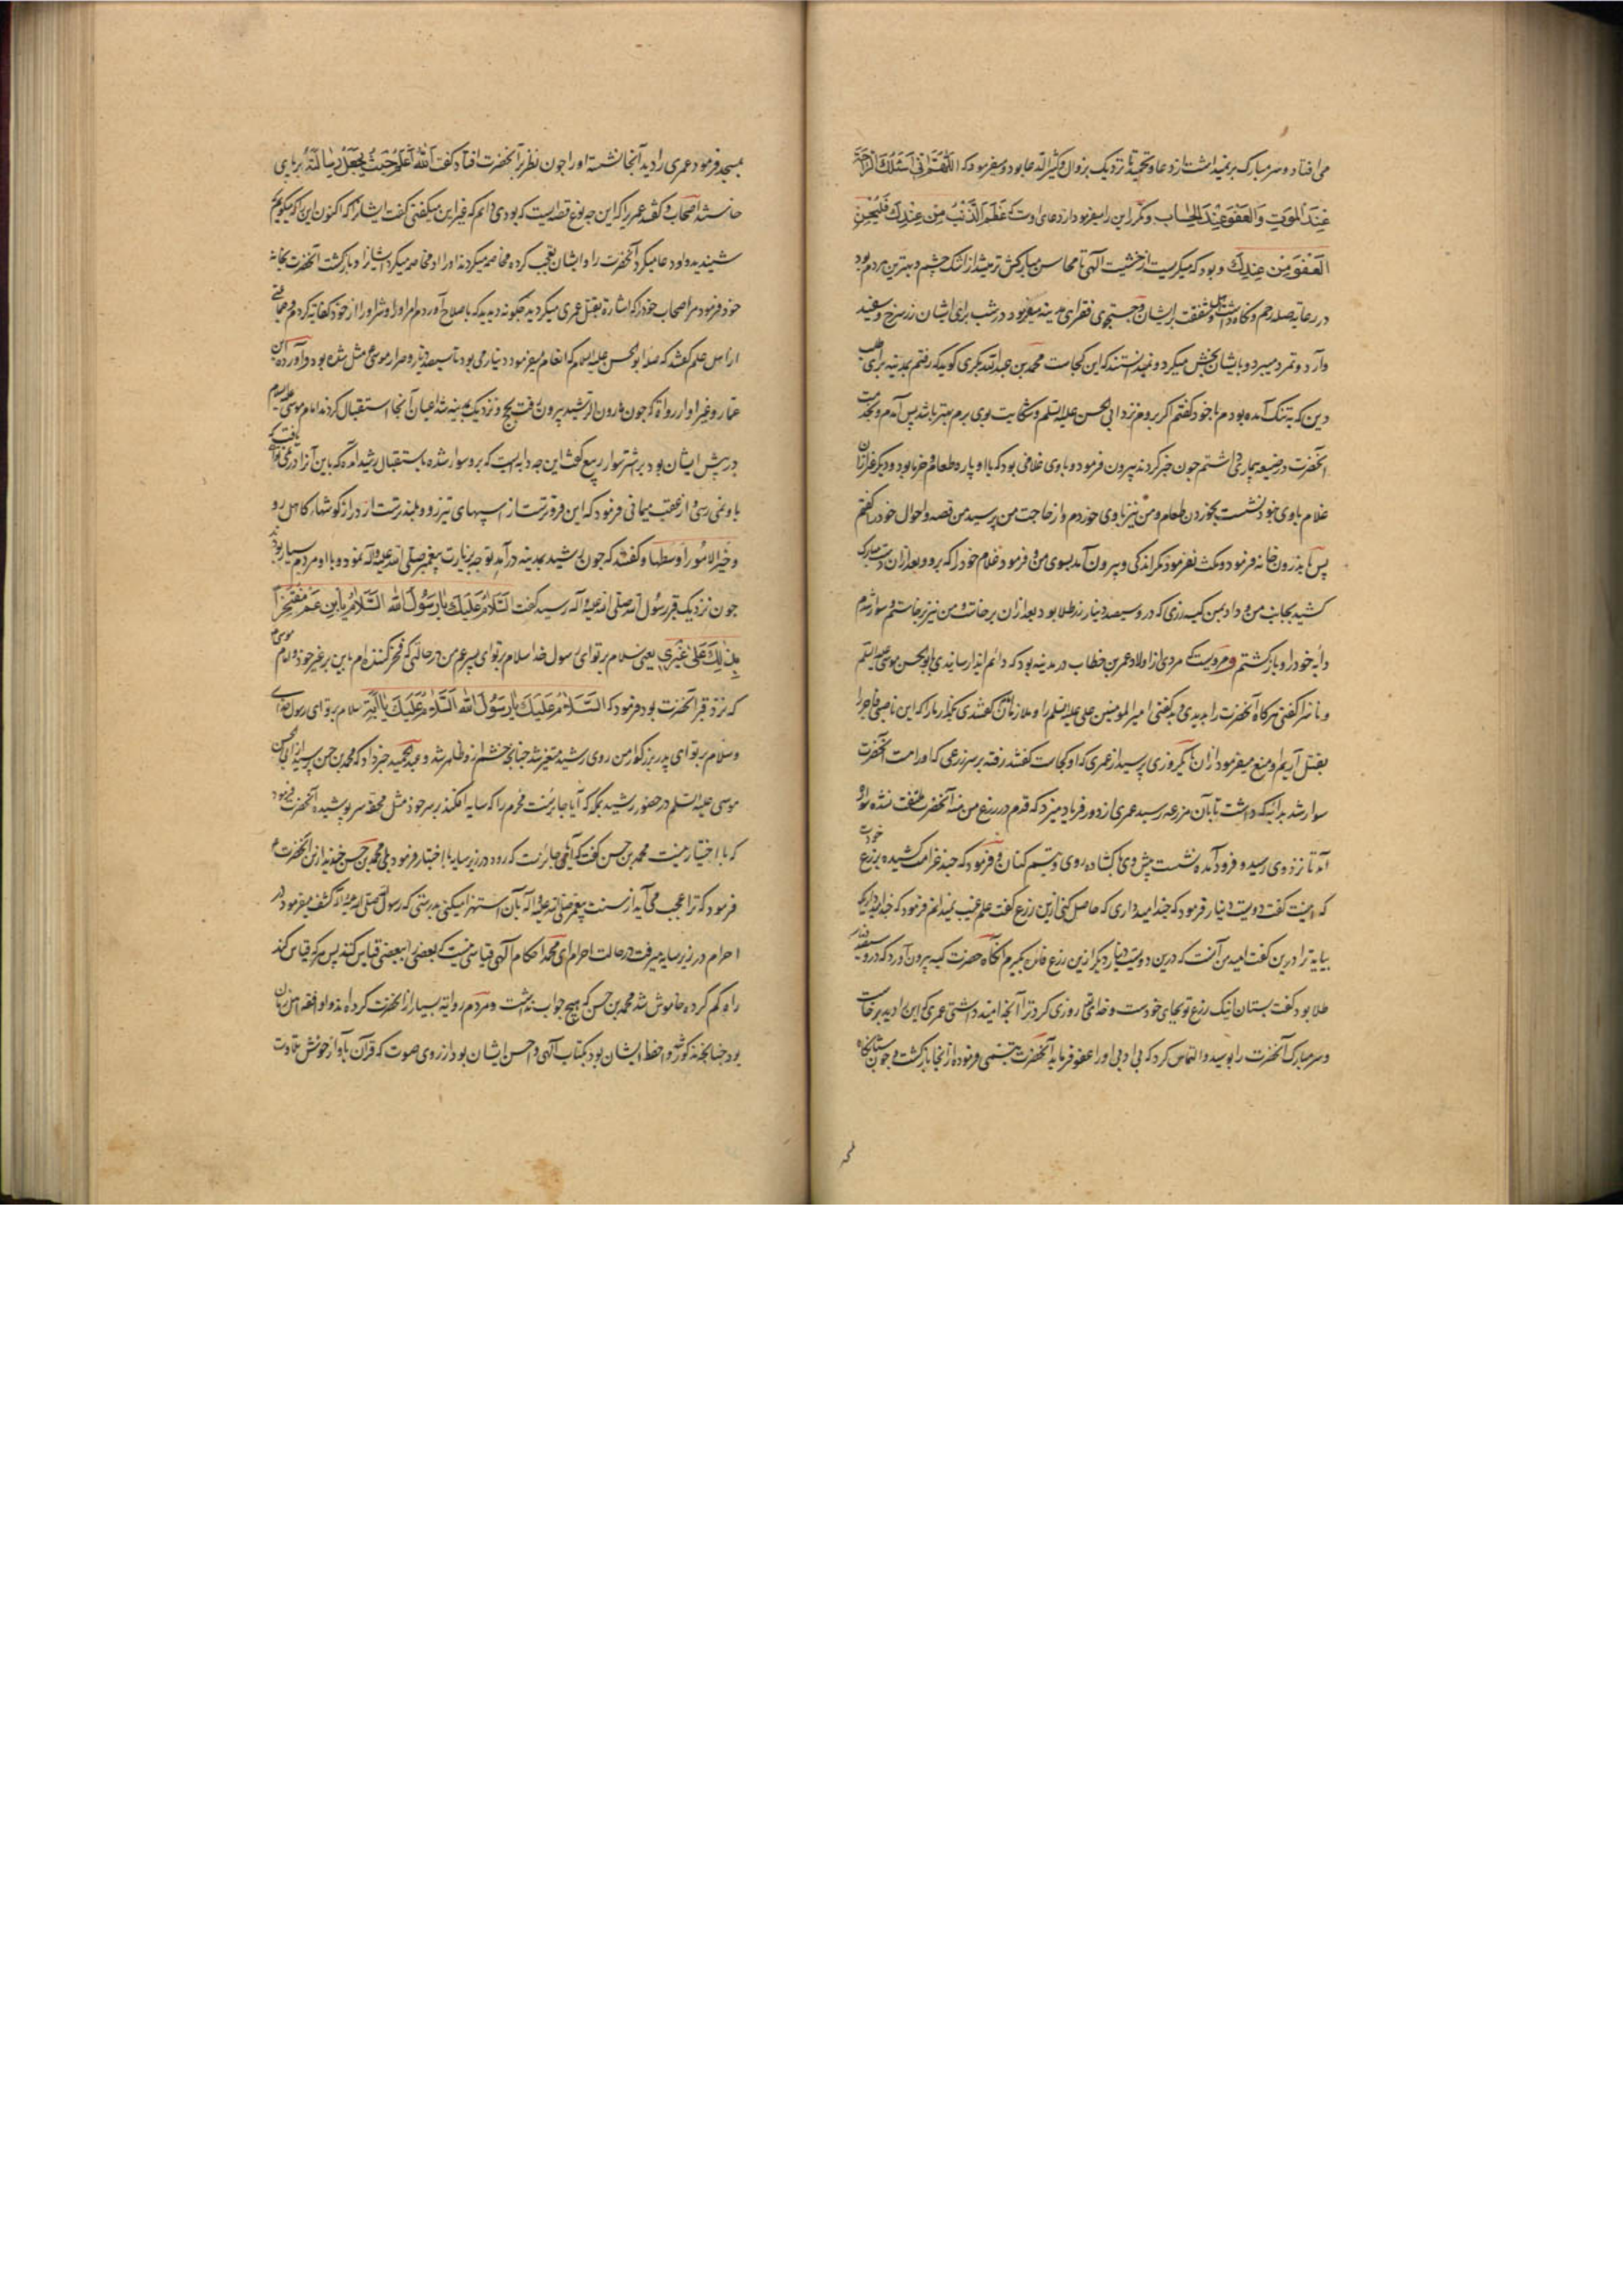 می افتاد و سر مبارک بر نمیداشت از دعا و تحمید تا نزدیک بزوال و کثیر الدعا بود و میفرمود که اللهم انی اسئلک الراحة
عند الموت و العفو عند الحساب و مکرر این را میفرمود و از دعای اوست که عظم الذنب من عبدک فلیحسن
العفو من عندک و بود که میکریست از خشیت الهی تا محاسن مبارکش تر میشد از اشک چشم و بهترین مردم بود
در رعایة صله رحم و نکاه داشت اهل و شفقت بر ایشان و جستجوی فقرای مدینه میفرمود در شب برای ایشان زر سرخ و سفید
و آرد و تمر و میبرد و بایشان بخش میکرد و نمیدانستند که این از کجاست محمد بن عبد الله بکری کوید که رفتم بمدینه برای طلب
دین که به تنک آمده بودم با خود کفتم اکر بروم نزد ابی الحسن علیه السلم و شکایت بوی برم بهتر باشد پس آمدم بخدمت
آنحضرت در ضیعه چون خبر کردند بیرون فرمود و با وی غلامی بود که با او پاره طعام و دیکر غیر از آن
غلام با وی نبود نشست بخوردن طعام و من نیز با وی خوردم و از حاجت من پرسید من قصه و احوال خود را کفتم
پس باندرون خانه فرمود و مکث نفرمود مکر اندکی و بیرون آمد بسوی من و فرمود غلام خود را که برو و بعد از آن دست مبارک
کشید بجانب من و داد بمن کیسه زری که در و سیصد دینار زر طلا بود بعد از آن برخاست و من نیز برخاستم و سوار شدم
دابه خود را و باز کشتم و مرویست که مردی از اولاد عمر بن خطاب در مدینه بود که دائم ایذا رساندی بابو الحسن موسی علیه السلم
و ناسزا کفتی هرکاه آنحضرت را بدیدی و بد کفتی امیر المومنین علی علیه السلم را و ملازمان کفتندی بکذار ما را که این ناصبی فاجر را
بقتل آریم او منع میفرمود از آن تا یکروزی پرسید از عمری که او کجاست کفتند رفته بر سر زرعی که او راست آنحضرت
سوار شد بدابه که داشت تا بآن مزرعه رسید عمری از دور فریاد میزد که قدم در زرع من منه آنحضرت ملتفت نشده سواره
آمد تا نزد وی رسید و فرود آمده نشست پیش وی با کشاده روی و تبسم کنان و فرمود که چند غرامت کشیده بزرع خودت
کفت دویست دینار فرمود که چند امید داری که حاصل کنی ازین زرع کفت علم غیب نمیدانم فرمود که چند امید داری که
بیاید ترا درین کفت امید من آنست که درین دویست دینار دیکر ازین زرع فائده بکیرم آنکاه حضرت کیسه بیرون آورد که درو سیصد دینار
طلا بود کفت بستان اینک زرع تو بجای خودست و خدایتعالی روزی کرد ترا آنچه امید داشتی عمری که این را دید برخاست
و سر مبارک آنحضرت را بوسید و التماس کرد که بی ادبی او را عفو فرماید آنحضرت تبسمی فرموده از آنجا بازکشت و چون
بمسجد فرمود عمری را دید آنجا نشسته او را چون نظر بر آنحضرت افتاد کفت الله اعلم حیث یجعل رسالته بر پای
خاستند اصحاب و کفتند عمری را که این چه نوع قصه ایست که بودی دائم که غیر این میکفتی کفت ایشان را که اکنون این که میکویم
شنیدید و او دعا میکرد آنحضرت را و ایشان تعجب کرده مخاصمه میکردند او را و او مخاصمه میکرد ایشان را و بازکشت آنحضرت بخانه
خود فرمود مر اصحاب خود را که اشارة بقتل عمری میکردید چکونه دیدید که باصلاح آوردم امر او را و شر او را از خود کفایة کردم و جماعتی
از اهل علم کفتند که صلۀ ابو الحسن علیه السلام که انعام میفرمود دویست دینار می بود تا سیصد دینار و صرار موسی مثل شده بود و آورده ابن
عمار و غیر او از رواة که چون هارون الرشید بیرون رفت بحج و نزدیک بمدینه شد اعیان آنجا استقبال کردند امام موسی علیه السلام
در پیش ایشان بود بر استر سوار ربیع کفت این چه دابه ایست که برو سوار شده باستقبال رشید آمده که باین آنرا در نمی توانی یافت
با و نمی رسی از عقب میمانی فرمود که این فروترست از اسپهای تیزرو و بلندترست از دراز کوشهای کاهل رو
و خیر الامور اوسطها و کفتند که چون رشید بمدینه درآمد توجه بزیارت پیغمبر صلی الله علیه و آله نمود و با او مردم بسیار بودند
چون نزدیک قبر رسول الله صلی الله علیه و آله رسید کفت السلام علیک یا رسول الله السلام یا ابن عم مفتخرا
بذلک علی غیری یعنی سلام بر تو ای رسول خدا سلام بر تو ای پسر عم من در حالتی که فخر کننده ام باین بر غیر خود و امام موسی
که نزد قبر آنحضرت بود فرمود که السلام علیک یا رسول الله السلام علیک یا ابه سلام بر تو ای رسول خدای
و سلام بر تو ای پدر بزرکوار من روی رشید متغیر شد چنانچه خشم ازو ظاهر شد و عبد الحمید خبر داد که محمد بن حسن پرسید از ابو الحسن
موسی علیه السلم در حضور رشید بمکه که آیا جایزست محرم را که سایه افکند بر سر خود مثل محفه سر پوشیده آنحضرت فرمود
که با اختیار نیست محمد بن حسن کفت که آیا جائزست که رود در زیر سایه با اختیار فرمود بلی محمد بن حسن خندید ازین آنحضرت
فرمود که ترا عجب می آید از سنت پیغمبر صلی الله علیه و آله بآن استهزا میکنی بدرستی که رسول الله صلی الله علیه و آله کشف میفرمود در
احرام در زیر سایه میرفت در حالت احرام ای محمد احکام الهی قیاسی نیست که بعضی را ببعضی قیاس کنند پس هر که قیاس کند
راه کم کرده خاموش شد محمد بن حسن که هیچ جواب نداشت و مردم روایة بسیار از آنحضرت کرده اند و او افقه اهل زمان
بود چنانچه مذکور شد و احفظ ایشان بود بکتاب الهی و احسن ایشان بود از روی صوت که قرآن بآواز خوش تلاوت